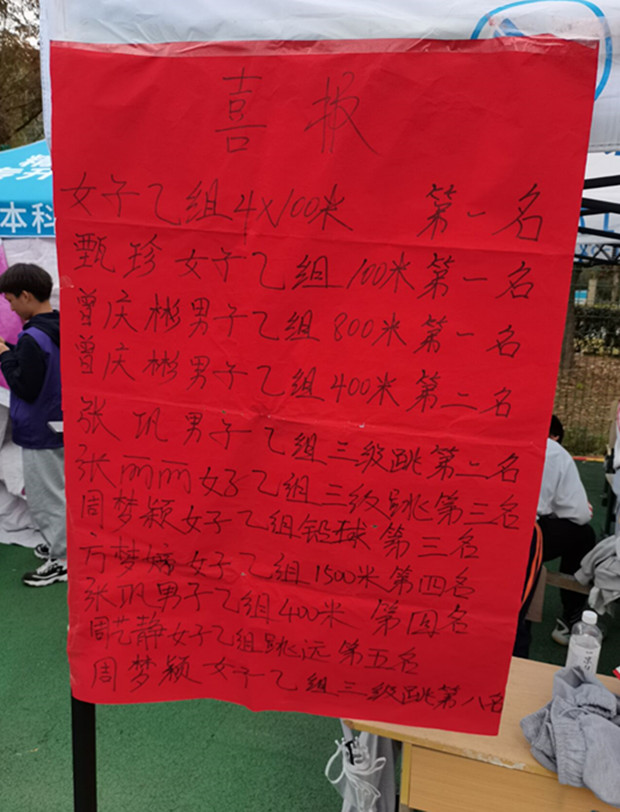 喜报
女子乙组4×100米 第一名
甄珍女子乙组100米第一名
曾庆彬男子乙组800米第一名
曾庆彬男子乙组400米第二名
张巩男子乙组三级跳第二名
张丽丽女子乙组三级跳第三名
周梦颖女子乙组铅球第三名
方梦嫡女子乙组1500米第四名
张巩男子乙组400米 第四名
周艺静女子乙组跳远第五名
周梦颖女子乙组三级跳第八名
本科